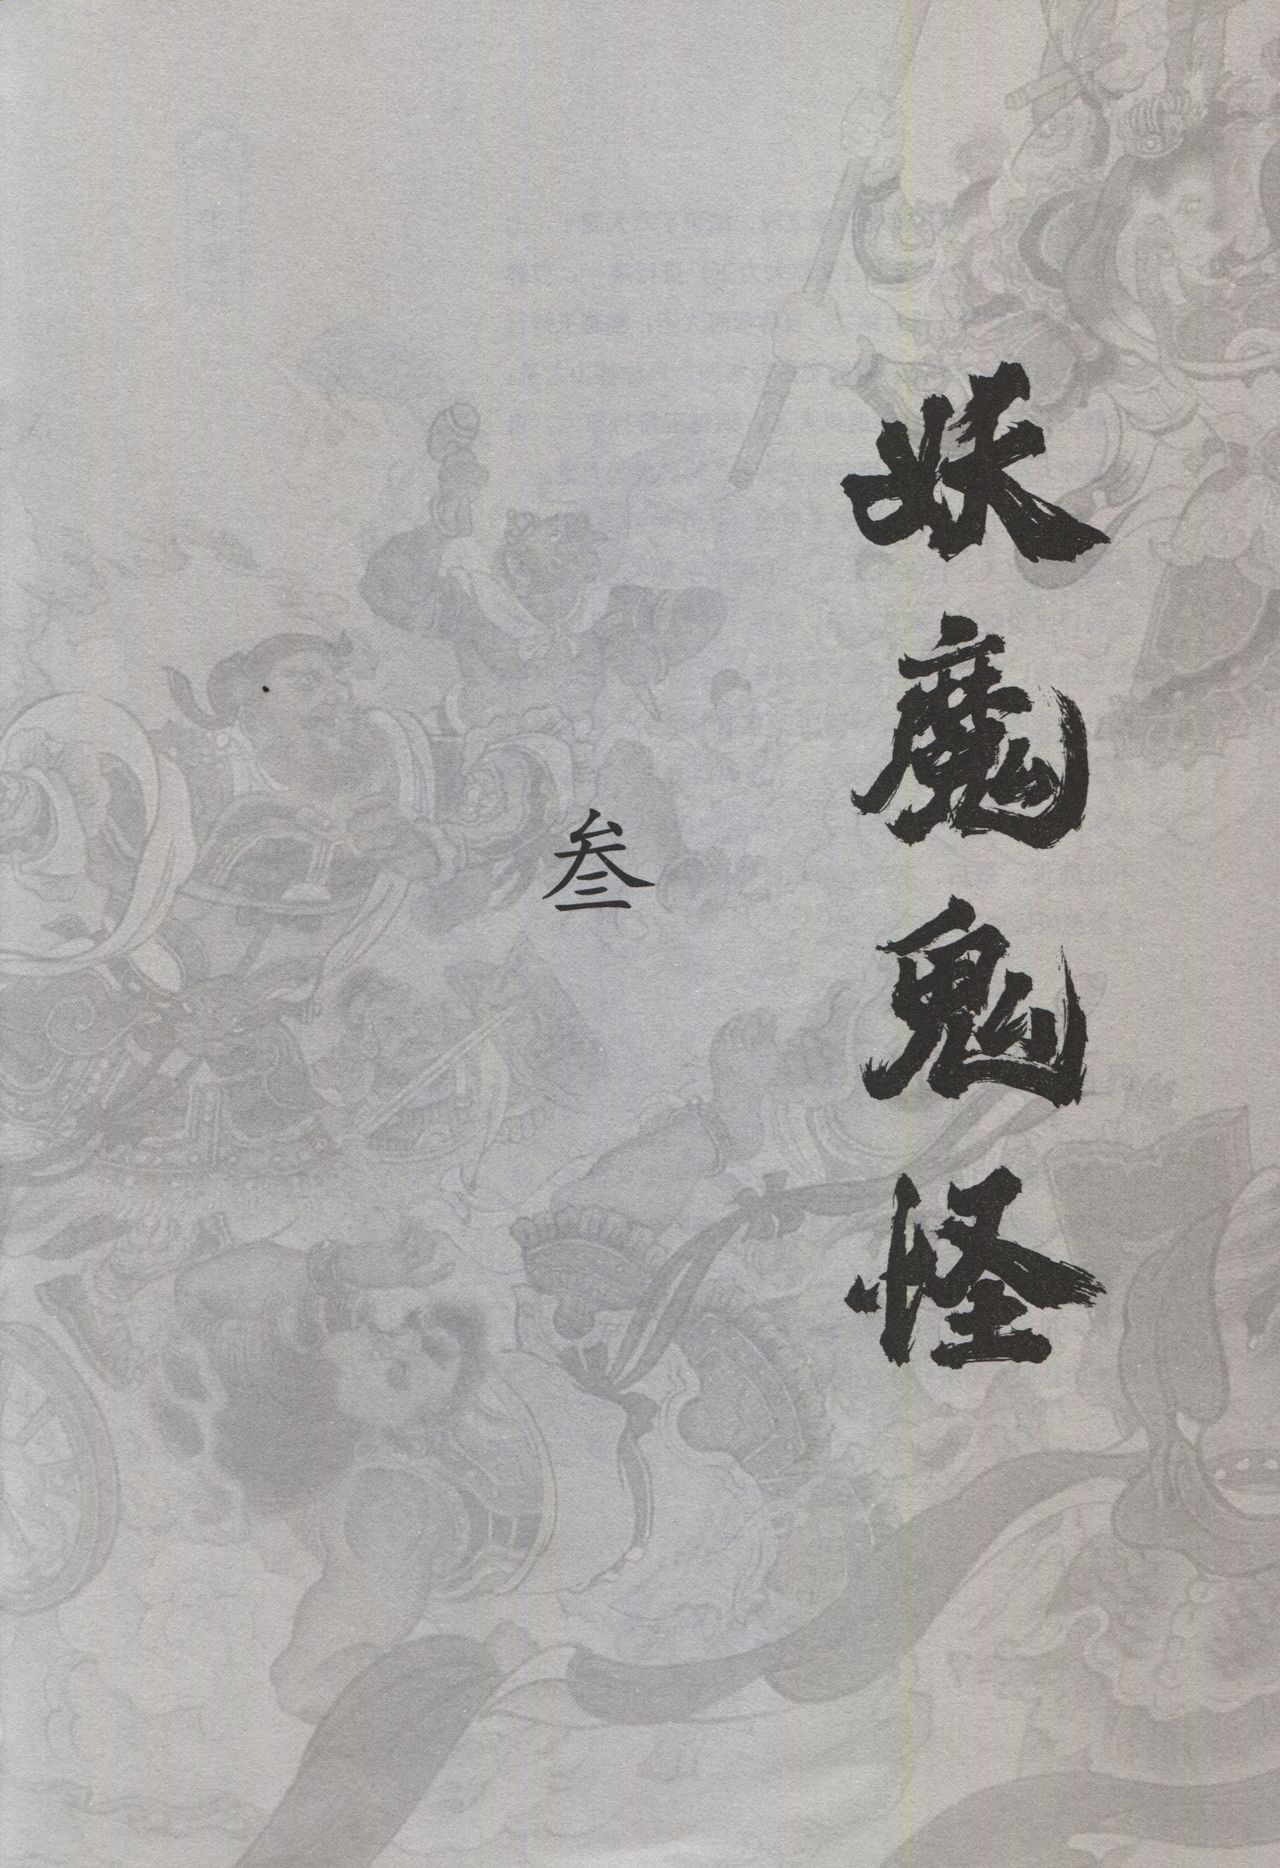 妖魔鬼怪
叁